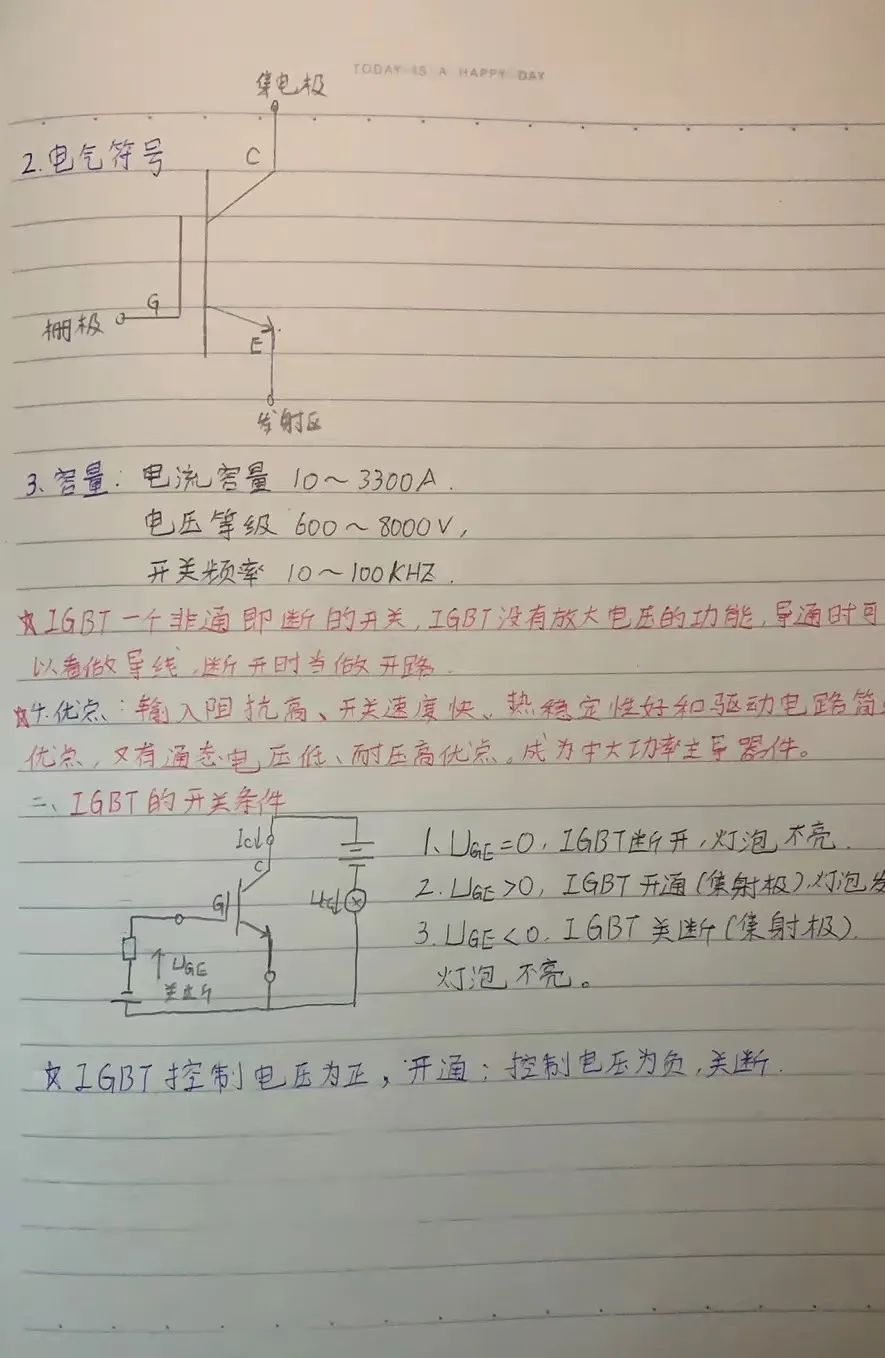 TODAY IS A HAPPY DAY
集电极
2.电气符号
C
G
栅极
E
发射区
3.容量：电流容量 10～3300A.
电压等级 600～8000V,
开关频率 10～100KHZ.
☆IGBT一个非通即断的开关,IGBT没有放大电压的功能,导通时可
以看做导线,断开时当做开路.
☆4.优点：输入阻抗高、开关速度快、热稳定性好和驱动电路简
优点,又有通态电压低、耐压高优点。成为中大功率主导器件。
二、IGBT的开关条件
Ic↓
C
G
UGE
关断
1、UGE=0,IGBT断开,灯泡不亮.
2.UGE>0,IGBT开通(集射极).灯泡发
3.UGE<0.IGBT关断(集射极).
灯泡不亮。
☆IGBT控制电压为正,开通;控制电压为负,关断.